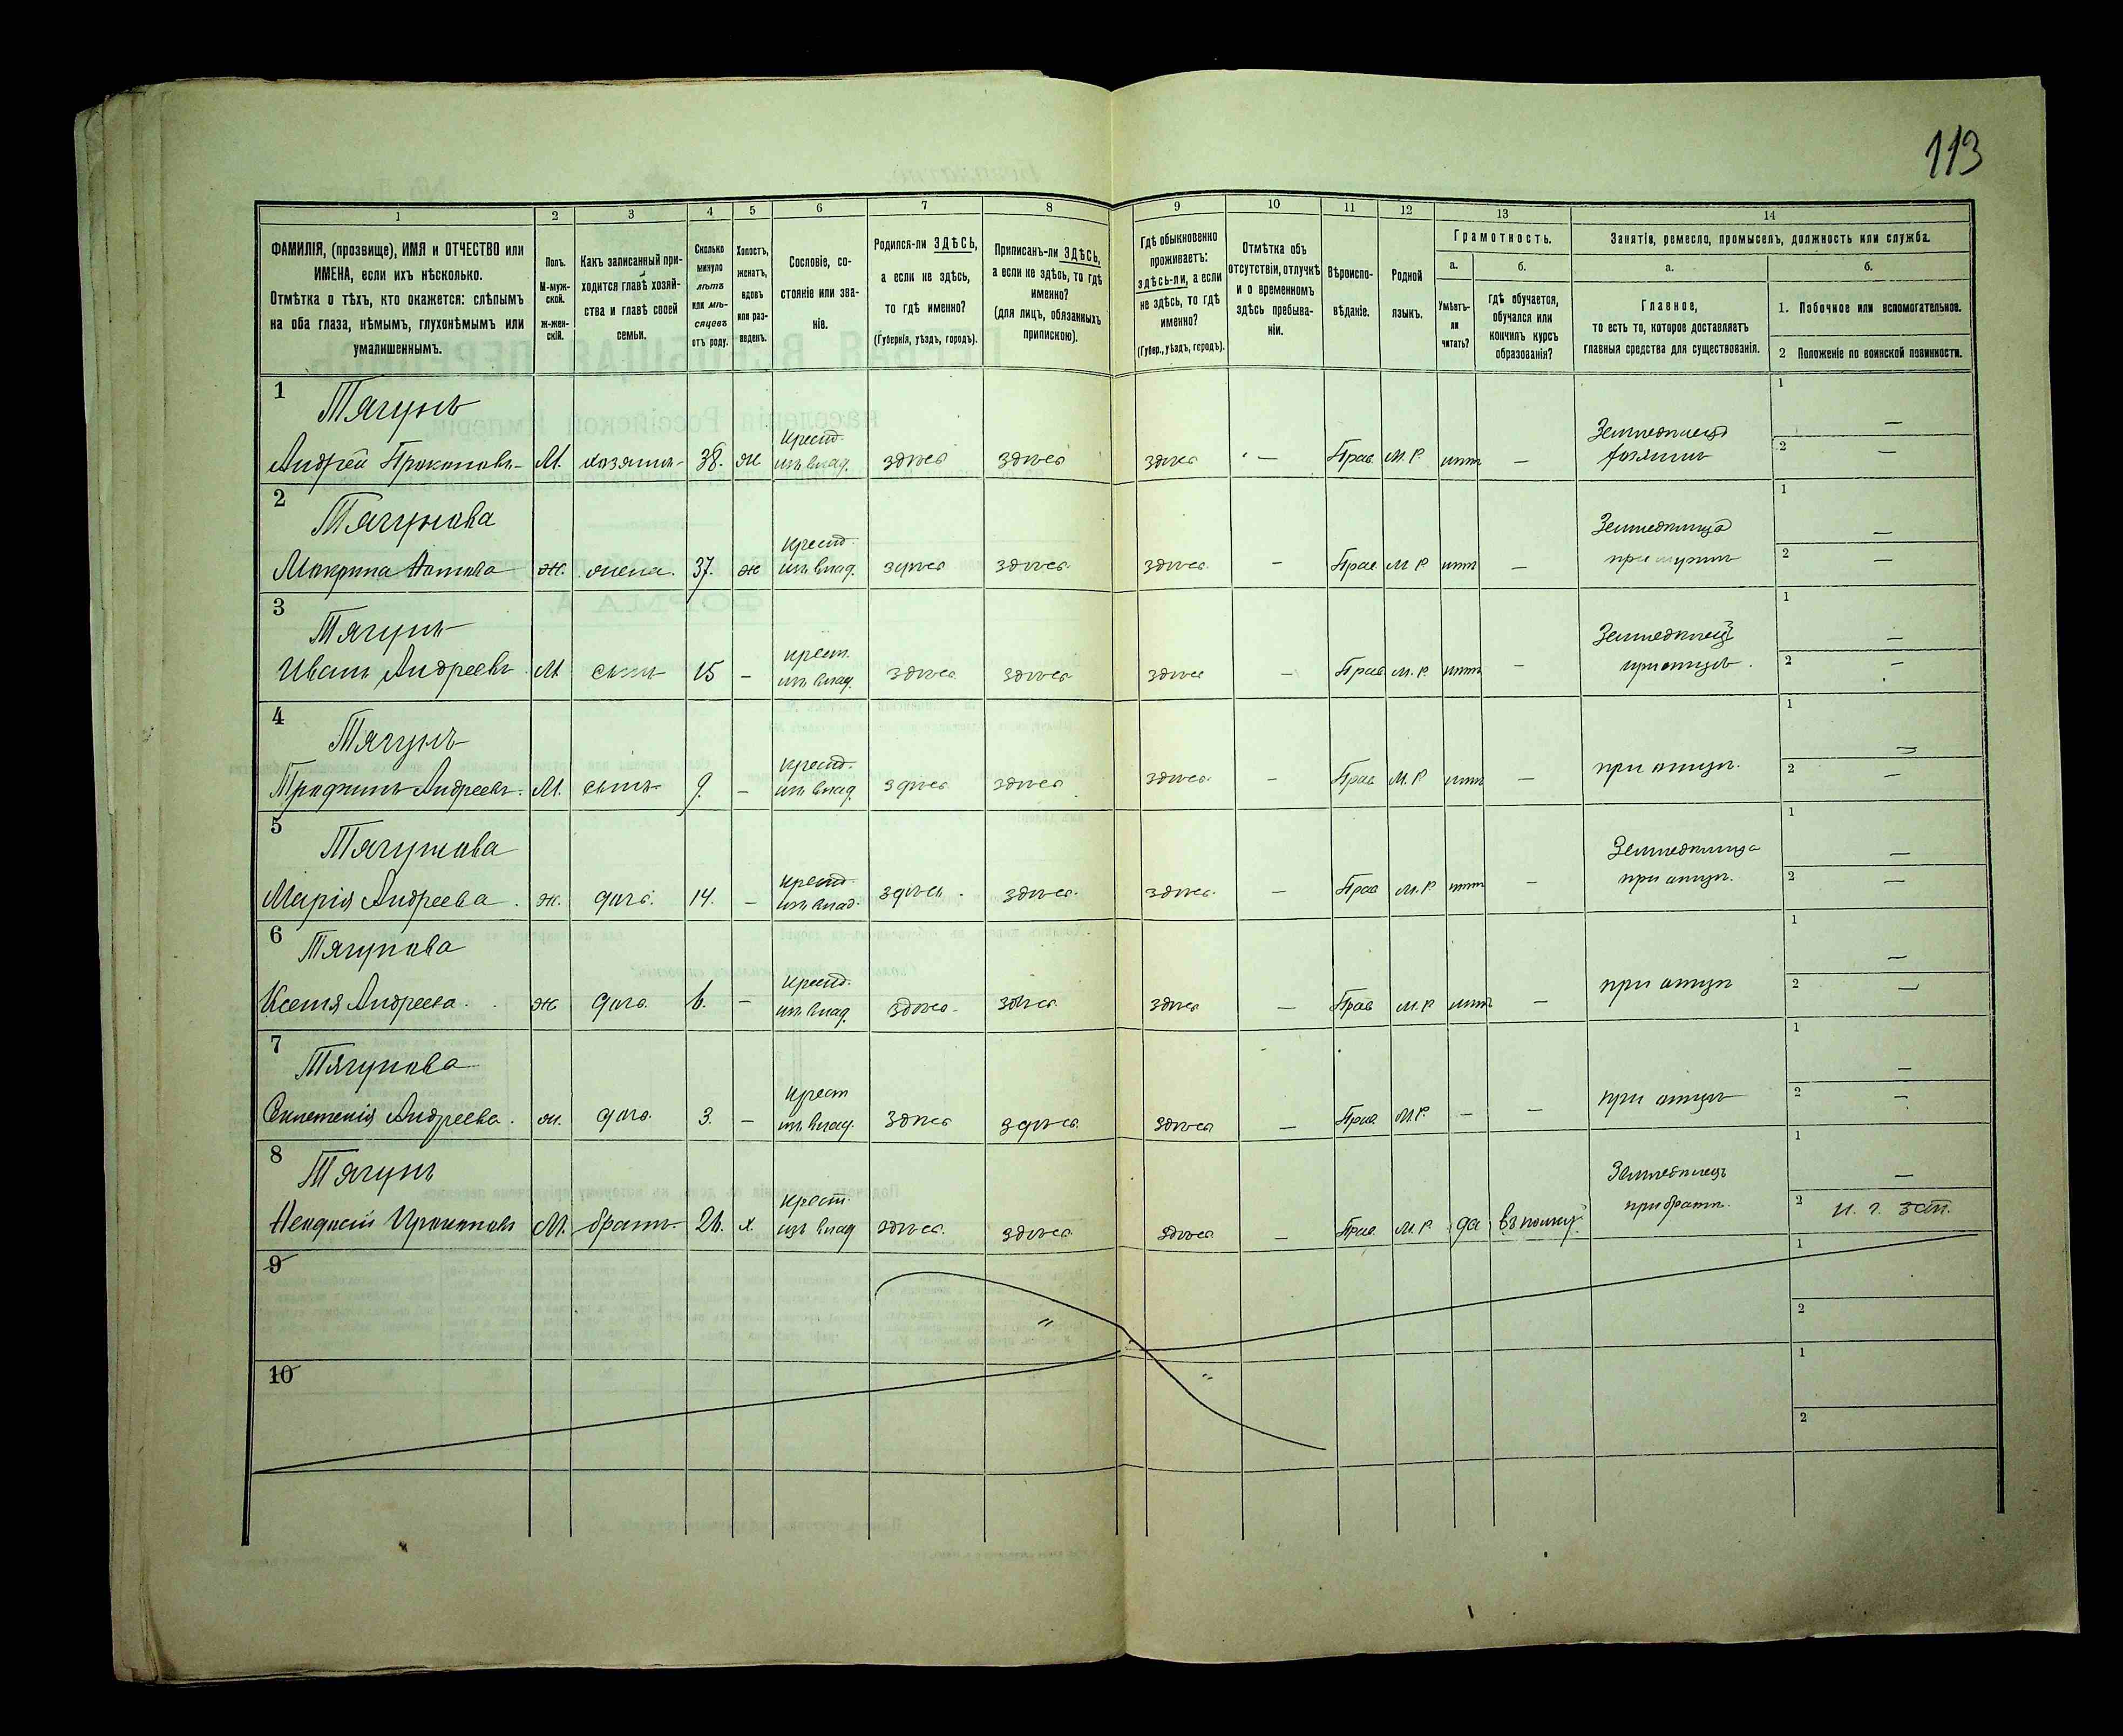 113
1 2 3 4 5 6 7 8 9 10 11 12 13 14
ФАМИЛІЯ, (прозвище), ИМЯ и ОТЧЕСТВО или
ИМЕНА, если ихъ нѣсколько.
Отмѣтка о тѣхъ, кто окажется: слѣпымъ
на оба глаза, нѣмымъ, глухонѣмымъ или
умалишеннымъ.
Полъ.
М-муж-
ской.
ж-жен-
скій.
Какъ записанный при-
ходится главѣ хозяй-
ства и главѣ своей
семьи.
Сколько
минуло
лѣтъ
или мѣ-
сяцевъ
отъ роду.
Холостъ,
женатъ,
вдовъ
или раз-
веденъ.
Сословіе, со-
стояніе или зва-
ніе.
Родился-ли ЗДѢСЬ,
а если не здѣсь,
то гдѣ именно?
(Губернія, уѣздъ, городъ).
Приписанъ-ли ЗДѢСЬ,
а если не здѣсь, то гдѣ
именно?
(для лицъ, обязанныхъ
припискою).
Гдѣ обыкновенно
проживаетъ:
здѣсь-ли, а если
не здѣсь, то гдѣ
именно?
(Губер., уѣздъ, городъ).
Отмѣтка объ
отсутствіи, отлучкѣ
и о временномъ
здѣсь пребыва-
ніи.
Вѣроиспо-
вѣданіе.
Родной
языкъ.
Грамотность.
а.
Умѣетъ-
ли
читать?
б.
Гдѣ обучается,
обучался или
кончилъ курсъ
образованія?
Занятія, ремесло, промыселъ, должность или служба.
а.
Главное,
то есть то, которое доставляетъ
главныя средства для существованія.
б.
1. Побочное или вспомогательное.
2 Положеніе по воинской повинности.
1
Тягунъ
Андрей Прокоповъ М. хозяинъ 38. ж Крест. изъ влад. здѣсь здѣсь здѣсь — Прав. М. Р. нѣтъ — Земледѣлецъ хозяинъ 1 — 2 —
2
Тягунова
Макрина ж. жена. 37. ж Крест. изъ влад. здѣсь здѣсь здѣсь — Прав М Р нѣтъ — Земледѣлица при мужѣ 1 — 2 —
3
Тягунъ
Иванъ Андреевъ М сынъ 15 — крест. изъ влад. здѣсь здѣсь здѣсь — Прав М. Р. нѣтъ — Земледѣлецъ при отцѣ. 1 — 2 —
4
Тягунъ
Трофимъ Андреевъ. М. сынъ 9. — крест. изъ влад. здѣсь здѣсь здѣсь — Прав М. Р нѣтъ — при отцѣ. 1 — 2 —
5
Тягунова
Марія Андреева. ж. дочь. 14. — крест. изъ влад. здѣсь. здѣсь. здѣсь. — Прав М. Р. нѣтъ — Земледѣлица при отцѣ. 1 — 2 —
6
Тягунова
Ксенія Андреева. ж дочь. 6. — крест. изъ влад. здѣсь здѣсь здѣсь — Прав М. Р нѣтъ — при отцѣ 1 — 2 —
7
Тягунова
Андреева. ж. дочь. 3. — крест изъ влад. здѣсь здѣсь здѣсь — Прав. М. Р. — — при отцѣ 1 — 2 —
8
Тягунъ
Феодосій Прокоповъ М. братъ. 26. х. Крест. изъ влад здѣсь. здѣсь. здѣсь — Прав М. Р да Земледѣлецъ при братѣ. 1 — 2
9 1 2
10 1 2